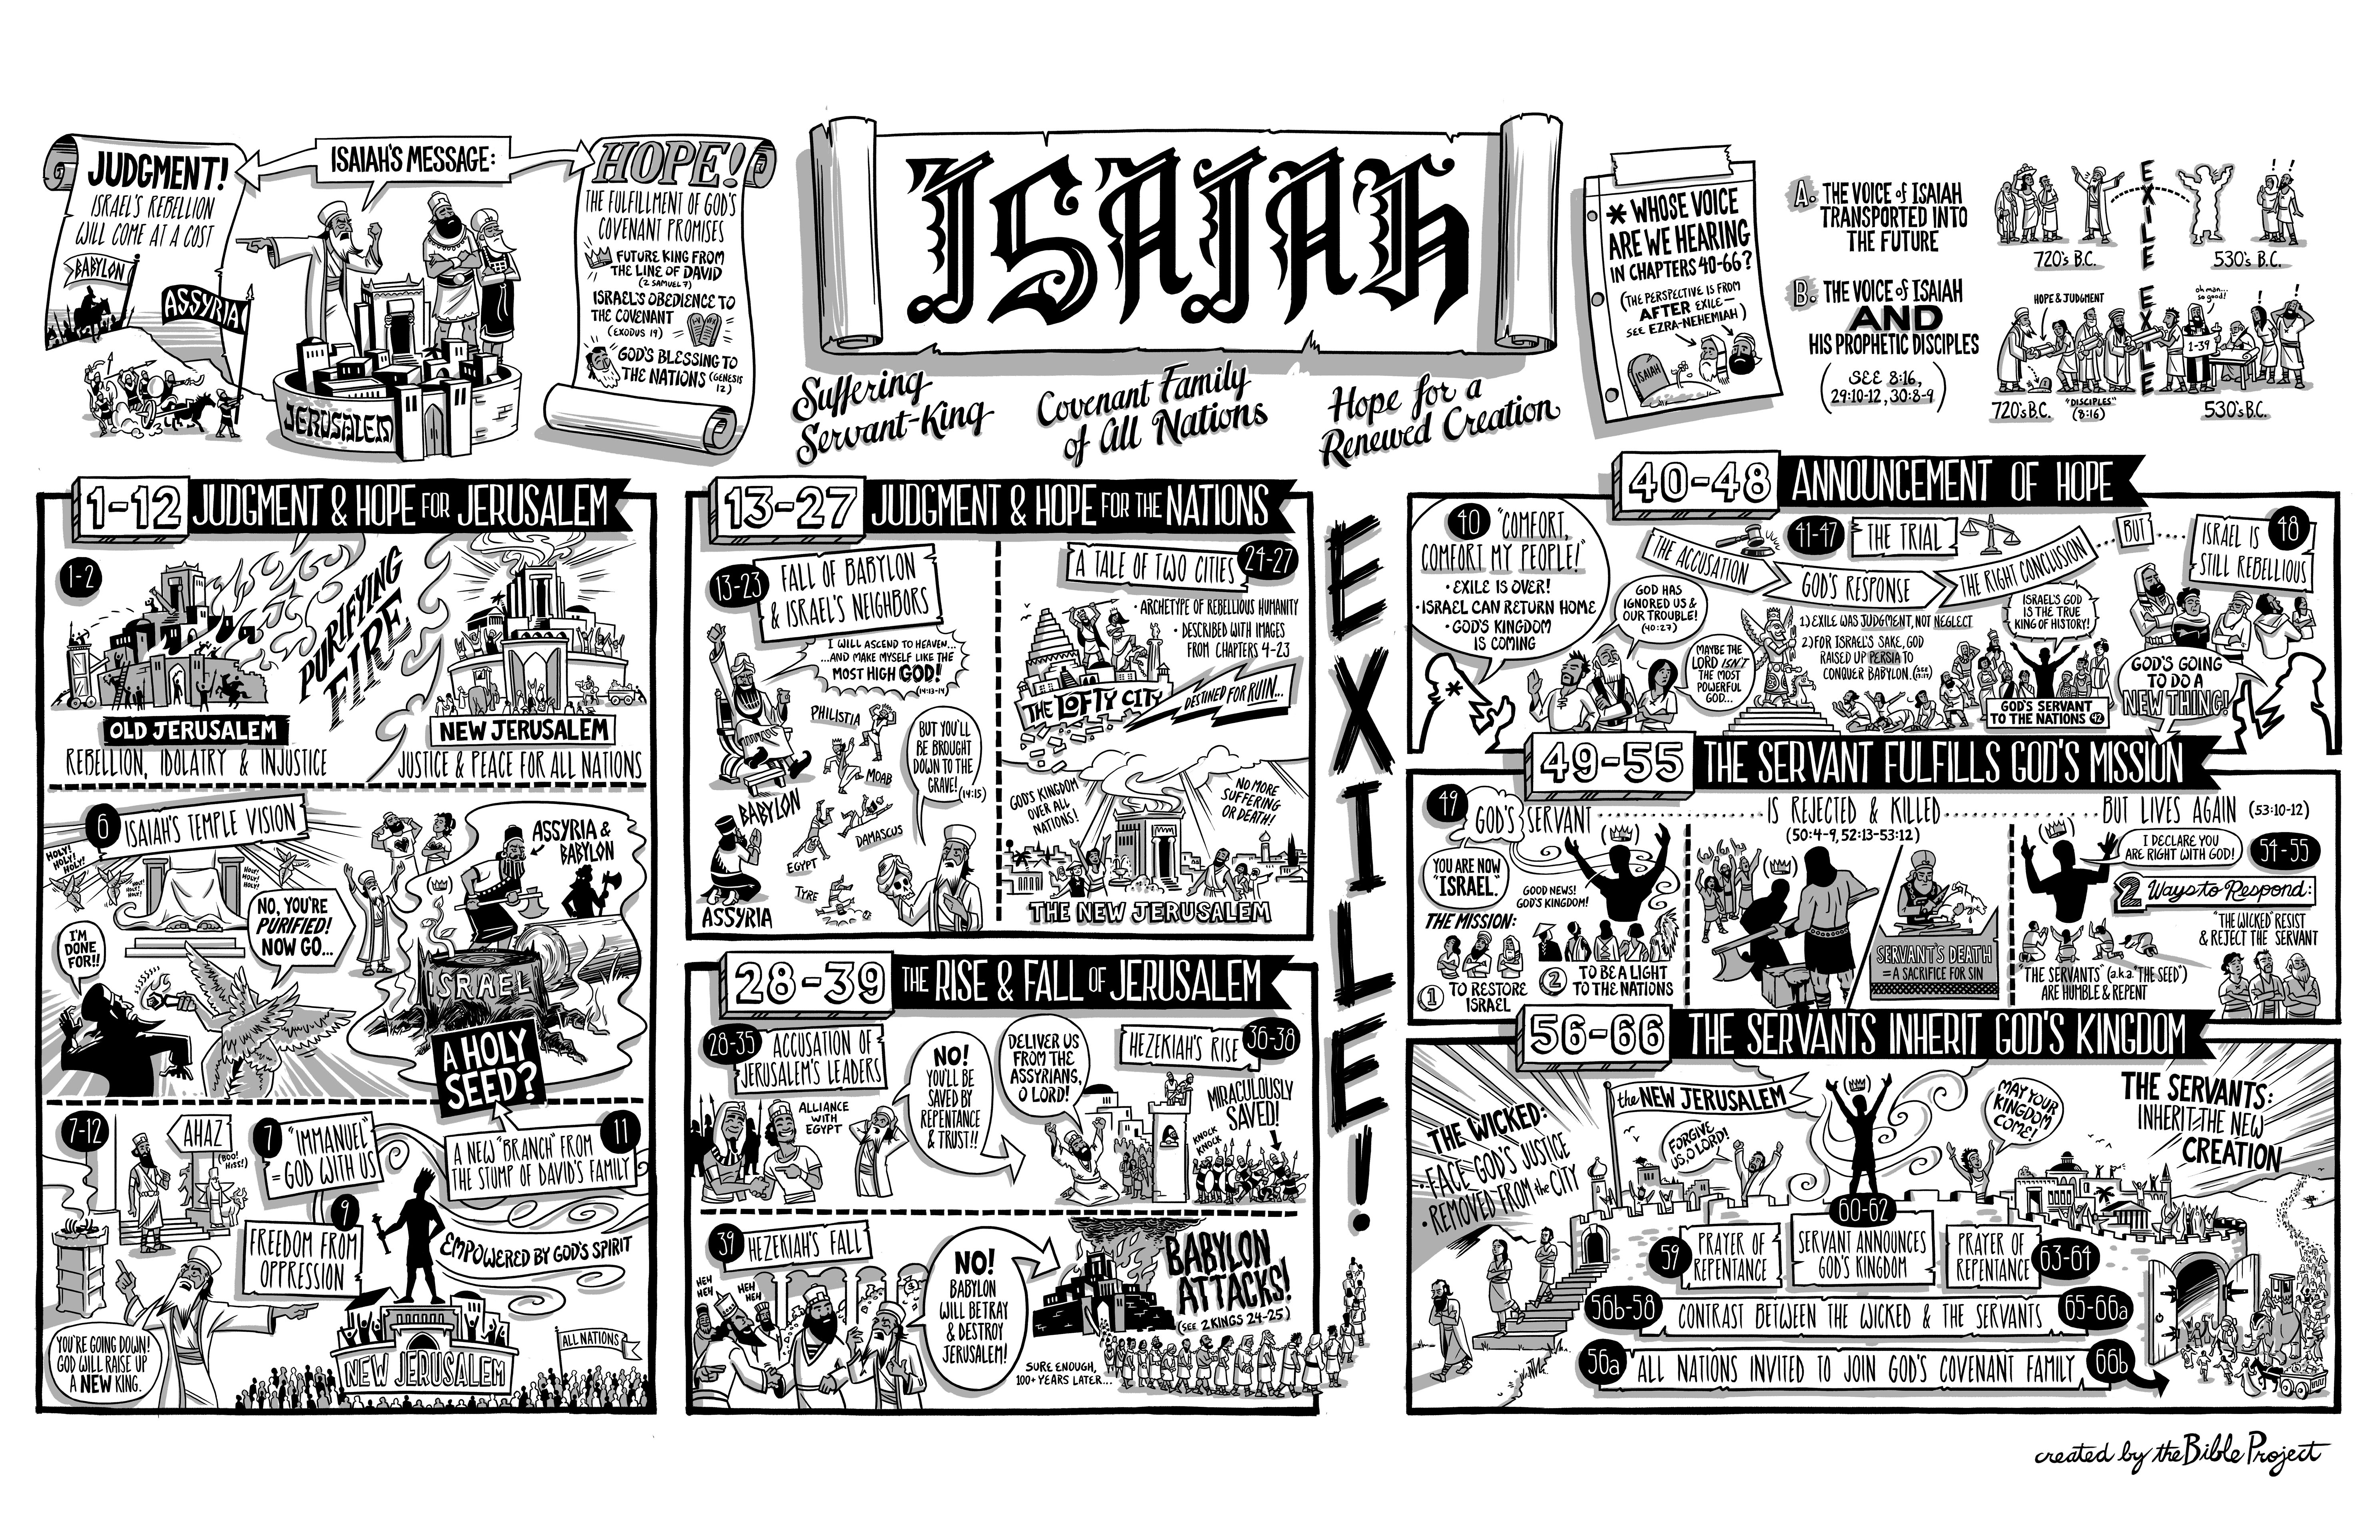 ISAIAH'S MESSAGE:
JUDGMENT!
ISRAEL'S REBELLION
WILL COME AT A COST
BABYLON
ASSYRIA
JERUSALEM
HOPE!
THE FULFILLMENT OF GOD'S
COVENANT PROMISES
FUTURE KING FROM
THE LINE OF DAVID
(2 SAMUEL 7)
ISRAEL'S OBEDIENCE TO
THE COVENANT
(EXODUS 19)
GOD'S BLESSING TO
THE NATIONS (GENESIS
12)
ISAIAH
Suffering
Servant-King
Covenant Family
of All Nations
Hope for a
Renewed Creation
* WHOSE VOICE
ARE WE HEARING
IN CHAPTERS 40-66?
(THE PERSPECTIVE IS FROM
AFTER EXILE—
SEE EZRA-NEHEMIAH)
ISAIAH
A. THE VOICE of ISAIAH
TRANSPORTED INTO
THE FUTURE
EXILE
! !
720's B.C.
530's B.C.
B. THE VOICE of ISAIAH
AND
HIS PROPHETIC DISCIPLES
(SEE 8:16,
29:10-12, 30:8-9)
HOPE & JUDGMENT
EXILE
oh man...
so good!
! !
1-39
720's B.C.
"DISCIPLES"
(8:16)
530's B.C.
1-12 JUDGMENT & HOPE FOR JERUSALEM
1-2
PURIFYING
FIRE
OLD JERUSALEM
REBELLION, IDOLATRY & INJUSTICE
NEW JERUSALEM
JUSTICE & PEACE FOR ALL NATIONS
6 ISAIAH'S TEMPLE VISION
HOLY!
HOLY!
HOLY!
HOLY!
HOLY!
HOLY!
I'M
DONE
FOR!!
NO, YOU'RE
PURIFIED!
NOW GO...
ASSYRIA &
BABYLON
ISRAEL
A HOLY
SEED?
7-12
AHAZ
(BOO!
HISS!)
7 "IMMANUEL"
= GOD WITH US
9
FREEDOM FROM
OPPRESSION
11
A NEW "BRANCH" FROM
THE STUMP OF DAVID'S FAMILY
EMPOWERED BY GOD'S SPIRIT
YOU'RE GOING DOWN!
GOD WILL RAISE UP
A NEW KING.
NEW JERUSALEM
ALL NATIONS
13-27 JUDGMENT & HOPE FOR THE NATIONS
13-23
FALL OF BABYLON
& ISRAEL'S NEIGHBORS
I WILL ASCEND TO HEAVEN...
...AND MAKE MYSELF LIKE THE
MOST HIGH GOD!
(14:13-14)
PHILISTIA
MOAB
BABYLON
DAMASCUS
EGYPT
TYRE
ASSYRIA
BUT YOU'LL
BE BROUGHT
DOWN TO THE
GRAVE! (14:15)
A TALE OF TWO CITIES 24-27
• ARCHETYPE OF REBELLIOUS HUMANITY
• DESCRIBED WITH IMAGES
FROM CHAPTERS 4-23
THE LOFTY CITY
DESTINED FOR RUIN...
GOD'S KINGDOM
OVER ALL
NATIONS!
NO MORE
SUFFERING
OR DEATH!
THE NEW JERUSALEM
28-39 THE RISE & FALL OF JERUSALEM
28-35 ACCUSATION OF
JERUSALEM'S LEADERS
ALLIANCE
WITH
EGYPT
NO!
YOU'LL BE
SAVED BY
REPENTANCE
& TRUST!!
DELIVER US
FROM THE
ASSYRIANS,
O LORD!
HEZEKIAH'S RISE 36-38
MIRACULOUSLY
SAVED!
KNOCK
KNOCK
39 HEZEKIAH'S FALL
HEH
HEH
HEH
HEH
NO!
BABYLON
WILL BETRAY
& DESTROY
JERUSALEM!
BABYLON
ATTACKS!
(SEE 2 KINGS 24-25)
SURE ENOUGH,
100+ YEARS LATER...
EXILE!
40-48 ANNOUNCEMENT OF HOPE
40 "COMFORT,
COMFORT MY PEOPLE!"
• EXILE IS OVER!
• ISRAEL CAN RETURN HOME
• GOD'S KINGDOM
IS COMING
*
41-47 THE TRIAL
THE ACCUSATION
GOD'S RESPONSE
THE RIGHT CONCLUSION
BUT
GOD HAS
IGNORED US &
OUR TROUBLE!
(40:27)
MAYBE THE
LORD ISN'T
THE MOST
POWERFUL
GOD...
1) EXILE WAS JUDGMENT, NOT NEGLECT
2) FOR ISRAEL'S SAKE, GOD
RAISED UP PERSIA TO
CONQUER BABYLON.
ISRAEL'S GOD
IS THE TRUE
KING OF HISTORY!
GOD'S SERVANT
TO THE NATIONS 42
ISRAEL IS 48
STILL REBELLIOUS
GOD'S GOING
TO DO A
NEW THING!
49-55 THE SERVANT FULFILLS GOD'S MISSION
49
GOD'S SERVANT
IS REJECTED & KILLED
(50:4-9, 52:13-53:12)
BUT LIVES AGAIN (53:10-12)
YOU ARE NOW
"ISRAEL."
GOOD NEWS!
GOD'S KINGDOM!
THE MISSION:
1 TO RESTORE
ISRAEL
2 TO BE A LIGHT
TO THE NATIONS
SERVANT'S DEATH
= A SACRIFICE FOR SIN
I DECLARE YOU
ARE RIGHT WITH GOD!
54-55
2 Ways to Respond:
"THE WICKED" RESIST
& REJECT THE SERVANT
"THE SERVANTS" (a.k.a. "THE SEED")
ARE HUMBLE & REPENT
56-66 THE SERVANTS INHERIT GOD'S KINGDOM
THE WICKED:
• FACE GOD'S JUSTICE
• REMOVED FROM the CITY
the NEW JERUSALEM
FORGIVE
US, O LORD!
MAY YOUR
KINGDOM
COME!
THE SERVANTS:
INHERIT THE NEW
CREATION
60-62
59 PRAYER OF
REPENTANCE
SERVANT ANNOUNCES
GOD'S KINGDOM
PRAYER OF
REPENTANCE 63-64
56b-58 CONTRAST BETWEEN THE WICKED & THE SERVANTS 65-66a
56a ALL NATIONS INVITED TO JOIN GOD'S COVENANT FAMILY 66b
created by the Bible Project